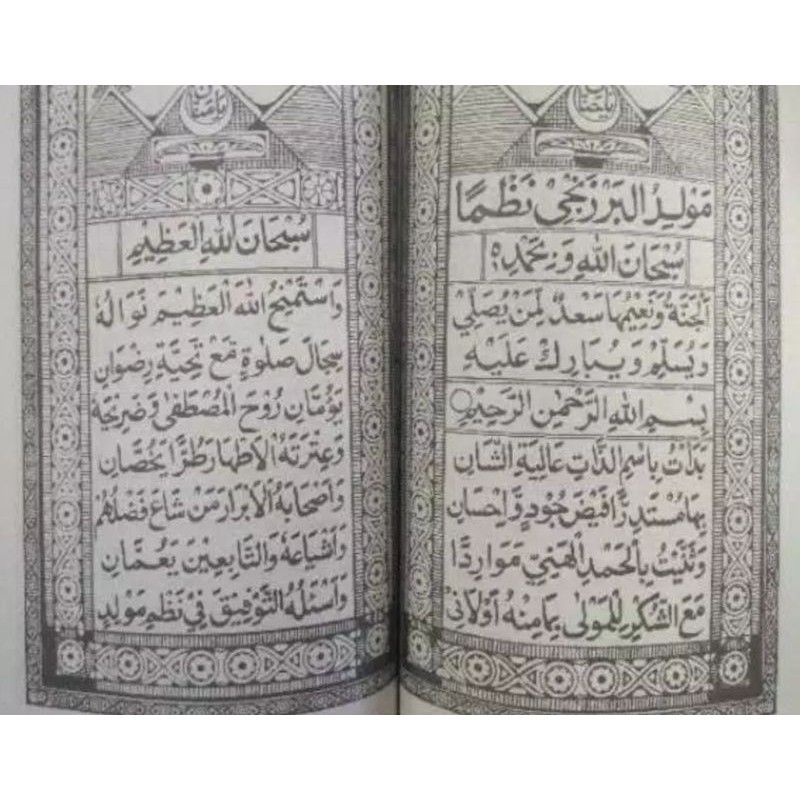 مَوْلِدُ الْبَرْزَنْجِيْ نَظْمًا
سُبْحَانَ اللهِ وَبِحَمْدِهٖ
اَلْجَنَّةُ وَنَعِيْمُهَا سَعْدٌ لِمَنْ يُصَلِّيْ
وَيُسَلِّمُ وَيُبَارِكُ عَلَيْهِ
بِسْمِ اللهِ الرَّحْمٰنِ الرَّحِيْمِ
بَدَأْتُ بِاسْمِ الذَّاتِ عَالِيَةِ الشَّانِ
بِهَا مُسْتَدِرًّا فَيْضَ جُوْدٍ وَّاِحْسَانِ
وَثَنَّيْتُ بِالْحَمْدِ الْهَنِيِّ مَوَارِدًا
مَعَ الشُّكْرِ لِلْمَوْلٰى بِمَا مِنْهُ اَوْلَانِيْ
سُبْحَانَ اللهِ الْعَظِيْمِ
وَاَسْتَمْنِحُ اللهَ الْعَظِيْمَ نَوَالَهُ
سِجَالَ صَلٰوةٍ مَعَ تَحِيَّةِ رِضْوَانِ
يَؤُمَّانِ رُوْحَ الْمُصْطَفٰى وَضَرِيْحَهُ
وَعِتْرَتَهُ الْاَطْهَارَ طُرًّا يَخُصَّانِ
وَاَصْحَابَهُ الْاَبْرَارَ مَنْ شَاعَ فَضْلُهُمْ
وَاَشْيَاعَهُ وَالتَّابِعِيْنَ يَعُمَّانِ
وَاَسْئَلُهُ التَّوْفِيْقَ فِيْ نَظْمِ مَوْلِدٍ